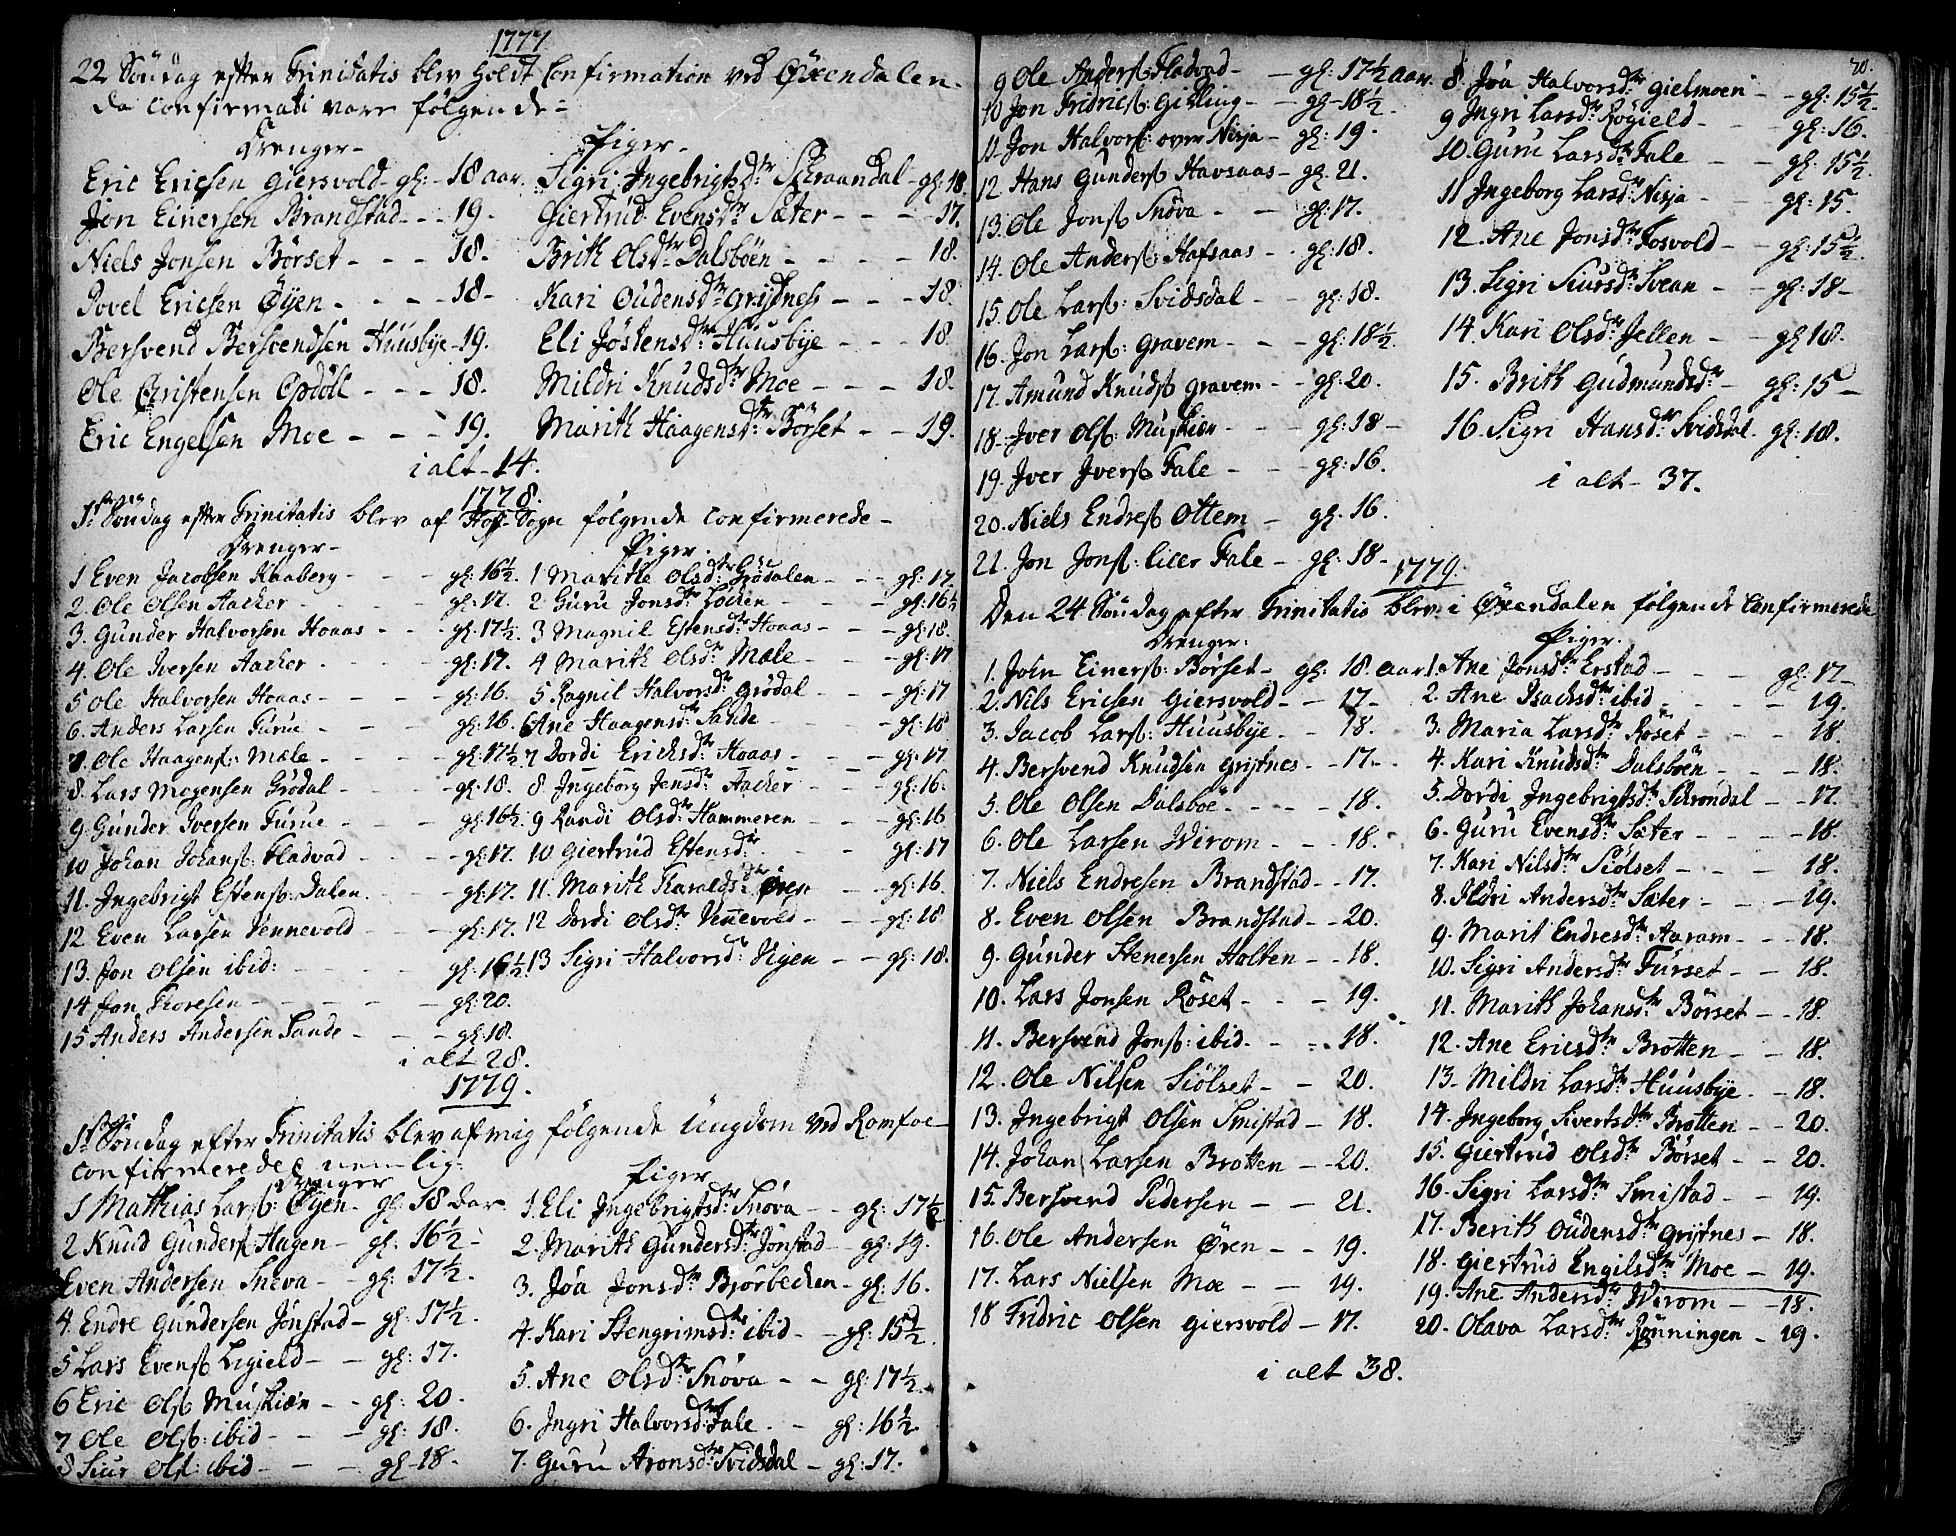 1777.
22 Søndag efter Trinitatis blev holdt Confirmation ved Øxendalen.
da Confirmati vare følgende:
Drenger.
Eric Ericsen Giersvold - gl: 18 aar.
Jon Einersen Brandstad - 19.
Niels Jonsen Børset - 18.
Povel Ericsen Øÿen - 18.
Bersvend Bersvendsen Huusbÿe - 19.
Ole Christensen Opdöll - 18.
Eric Engelsen Moe - 19.
Piger.
Sigri Ingebrigtsdtr: Schraandal - gl: 18.
Giertrud Evensdtr Sæter - 17.
Brith Olsdtr: Dalsböen - 18.
Kari Oudensdtr: Grÿtnes - 18.
Eli Jöstensdtr: Huusbÿe - 18.
Mildri Knudsdtr: Moe - 18.
Marith Haagensdtr: Börset - 19.
i alt - 14.
1778.
1ste Søndag efter Trinitatis blev af Hof-Sogn følgende Confirmerede -
Drenger -
1 Even Jacobsen Kaaberg - gl: 16½.
2. Ole Olsen Aacher - gl: 17.
3. Gunder Halvorsen Hoaas - gl: 17½.
4. Ole Iversen Aacher - gl: 17.
5 Ole Halvorsen Hoaas - gl: 16.
6. Anders Larsen Furu - gl: 16.
7. Ole Haagens: Mæle - gl: 17½.
8. Lars Mogensen Grödal - gl: 18.
9. Gunder Iversen Furue - gl: 16½.
10 Johan Johans: Fladvad - gl: 17.
11. Ingebrigt Estens: Dalen - gl: 17.
12. Even Larsen Vennevold - gl: 17.
13. Jon Olsen ibid: - gl: 16½.
14 Jon Thoresen - gl: 20.
15 Anders Andersen Sande - gl: 18.
Piger.
1 Marithe Olsdtr: Grödalen - gl: 17
2. Guru Jonsdtr: Löchen - gl: 16½
3 Magnil Estensdtr: Hoaas - gl: 18.
4 Marith Olsdtr: Mæle - gl: 17
5 Ragnil Halvorsdtr: Grödal - gl: 17
6 Ane Haagensdtr: Sande - gl: 18
7 Dordi Erichsdtr: Hoaas - gl: 17
8. Ingeborg Jensdtr: Aacher - gl: 16.
9 Randi Olsdtr: Hammeren - gl: 16
10 Giertrud Estensdtr: - gl: 17
11. Marith Haraldsdtr: Ören - gl: 16.
12 Dordi Olsdtr: Vennevold - gl: 18
13 Sigri Halvorsdtr: Vigen - gl: 18.
i alt 28.
1779.
1ste Søndag efter Trinitatis blev af mig følgende Ungdom ved Romfoe
Confirmerede nemlig:
Drenger
1 Mathias Lars: Öÿen - gl: 18 aar
2 Knud Gunders Hagen - gl: 16½ -
Even Andersen Sneva - gl: 17½.
4. Endre Gundersen Jönstad - gl: 17½.
5 Lars Evens Ligield - gl: 17.
6 Eric Ols Muskiær - gl: 20.
7 Ole Ols: ibid - gl: 18.
8 Siur Ols: ibid - gl - 18.
Piger
1. Eli Ingebrigtsdtr: Snöva - gl: 17½
2. Marith Gundersdtr: Jönstad - gl: 19.
3. Jöa Jonsdtr: Bjorbechen - gl: 16.
4. Kari Stengrimsdtr: ibid - gl: 15½.
5. Ane Olsdtr: Snöva - gl: 17½.
6. Ingri Halvorsdtr: Fale - gl: 16½.
7. Guru Aronsdtr: Svidsdal - gl: 17.
70.
9 Ole Anders: Fladvad - gl: 17½ aar.
10 Jon Fridrics: Gikling - gl - 18½.
11. Jon Halvors: over Nisja - gl: 19.
12 Hans Gunders Havsaas - gl: 21.
13. Ole Jons Snöva - gl: 17.
14. Ole Anders: Hafsaas - gl: 18.
15. Ole Lars: Svidsdal - gl: 18.
16. Jon Lars: Gravem - gl: 18½.
17. Amund Knuds Gravem - gl: 20.
18. Iver Ols: Muskiær - gl: 18 -
19. Iver Ivers Fale - gl: 16.
20. Niels Endres Ottem - gl: 16.
21. Jon Jons: liller Fale - gl: 18 -
8. Jöa Halvorsdtr: Gielmoen - gl: 15½.
9 Ingri Larsdtr: Rögield - gl: 16.
10. Guru Larsdtr: Fale - gl: 15½.
11 Ingeborg Larsdtr: Nisja - gl: 15.
12. Ane Jonsdtr: Fosvold - gl: 15½.
13. Sigri Siursdtr: Svean - gl: 18 -
14. Kari Olsdtr: Jellen - gl 18.
15. Brith Gudmundsdtr - gl: 15 -
16. Sigri Hansdtr: Svidsdal - gl: 18.
i alt - 37.
1779.
Den 24 Søndag efter Trinitatis blev i Øxendalen følgende Confirmerede
Drenger.
1. John Einers: Börset - gl: 18. aar
2. Nils Ericsen Giersvold - 17 -
3. Jacob Lars: Huusbÿe - 18.
4. Bersvend Knudsen Grÿtnes - 17 -
5. Ole Olsen Dalsböe - 18.
6. Ole Larsen Wirom - 18.
7. Niels Endresen Brandstad - 17.
8. Even Olsen Brandstad - 20.
9. Gunder Stenersen Holten - 18.
10. Lars Jonsen Röset - 19.
11. Bersvend Jons: ibid - 18.
12. Ole Nilsen Siölset - 20.
13. Ingebrigt Olsen Smistad - 18.
14. Johan Larsen Brotten - 20.
15. Bersvend Pedersen - 21.
16. Ole Andersen Ören - 19.
17. Lars Nielsen Moe - 19.
18 Fridric Olsen Giersvold - 17.
Piger.
1. Ane Jonsdtr: Erstad - gl: 17 -
2. Ane Isachsdtr: ibid - 19.
3. Maria Larsdtr: Röset - 18.
4. Kari Knudsdtr: Dalsböen - 18.
5. Dordi Ingebrigtsdtr: Schrondal - 17.
6. Guru Evensdtr: Sæter - 18.
7. Kari Nilsdtr: Siölset - 18.
8. Ildri Andersdtr: Sæter - 19.
9. Marit Endresdtr: Aaram - 18.
10. Sigri Andersdtr: Furset - 18.
11. Marith Johansdtr: Börset - 18.
12. Ane Ericsdtr: Brotten - 18.
13. Mildri Larsdtr: Huusbÿe - 18.
14. Ingeborg Sivertsdtr: Brotten - 20.
15. Giertrud Olsdtr: Börset - 20.
16. Sigri Larsdtr: Smistad - 19.
17. Berith Oudensdtr: Grÿtnes - 18.
18. Giertrud Engilsdtr: Moe - 19.
19. Ane Andersdtr: Wirom - 18.
20. Olava Larsdtr: Rönningen - 19.
i alt 38.